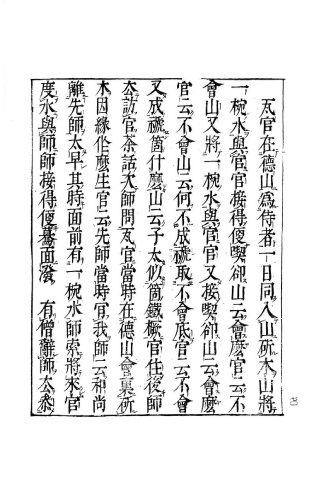 瓦官在德山爲侍者一日同入山斫木山將
一椀水與官官接得便喫卻山云會麼官云不
會山又將一椀水與官官又接喫卻山云會麼
官云不會山云何不成禠取不會底官云不會
又成禠箇什麼山云子太似箇鐵橛官住後師
去訪官茶話次師問瓦官當時在德山會裏斫
木因緣作麼生官云先師當時官我師云和尚
離先師太早其時面前有一椀水師索將來官
度水與師師接得便驀面潑　有僧辭師去參